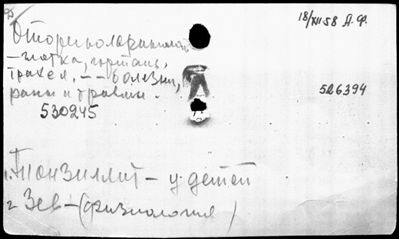 18/XII-58 А.Ф.
Оториноларинголог
- глотка, гортань,
трахея, -- болезни,
раны и травмы.
526394
530245
1. Тонзиллит - у детей
2 Зев - (физиология)